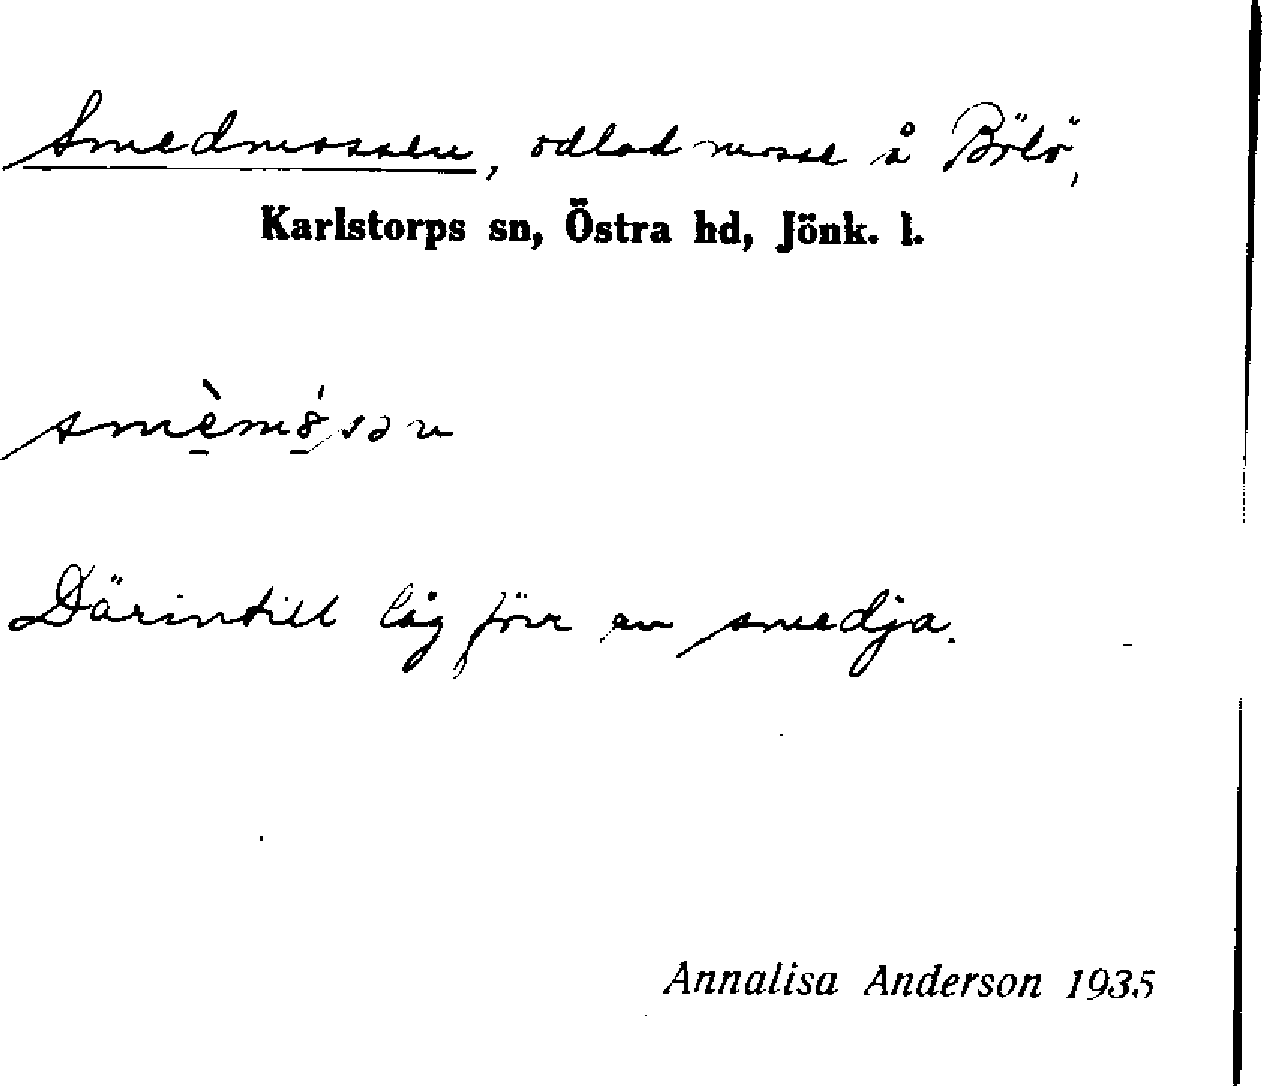 Smedmossen, odlad mosse å Bölö,
Karlstorps sn, Östra hd, Jönk. l.
smèm8́sən
Därintill låg förr en smedja.
Annalisa Anderson 1935